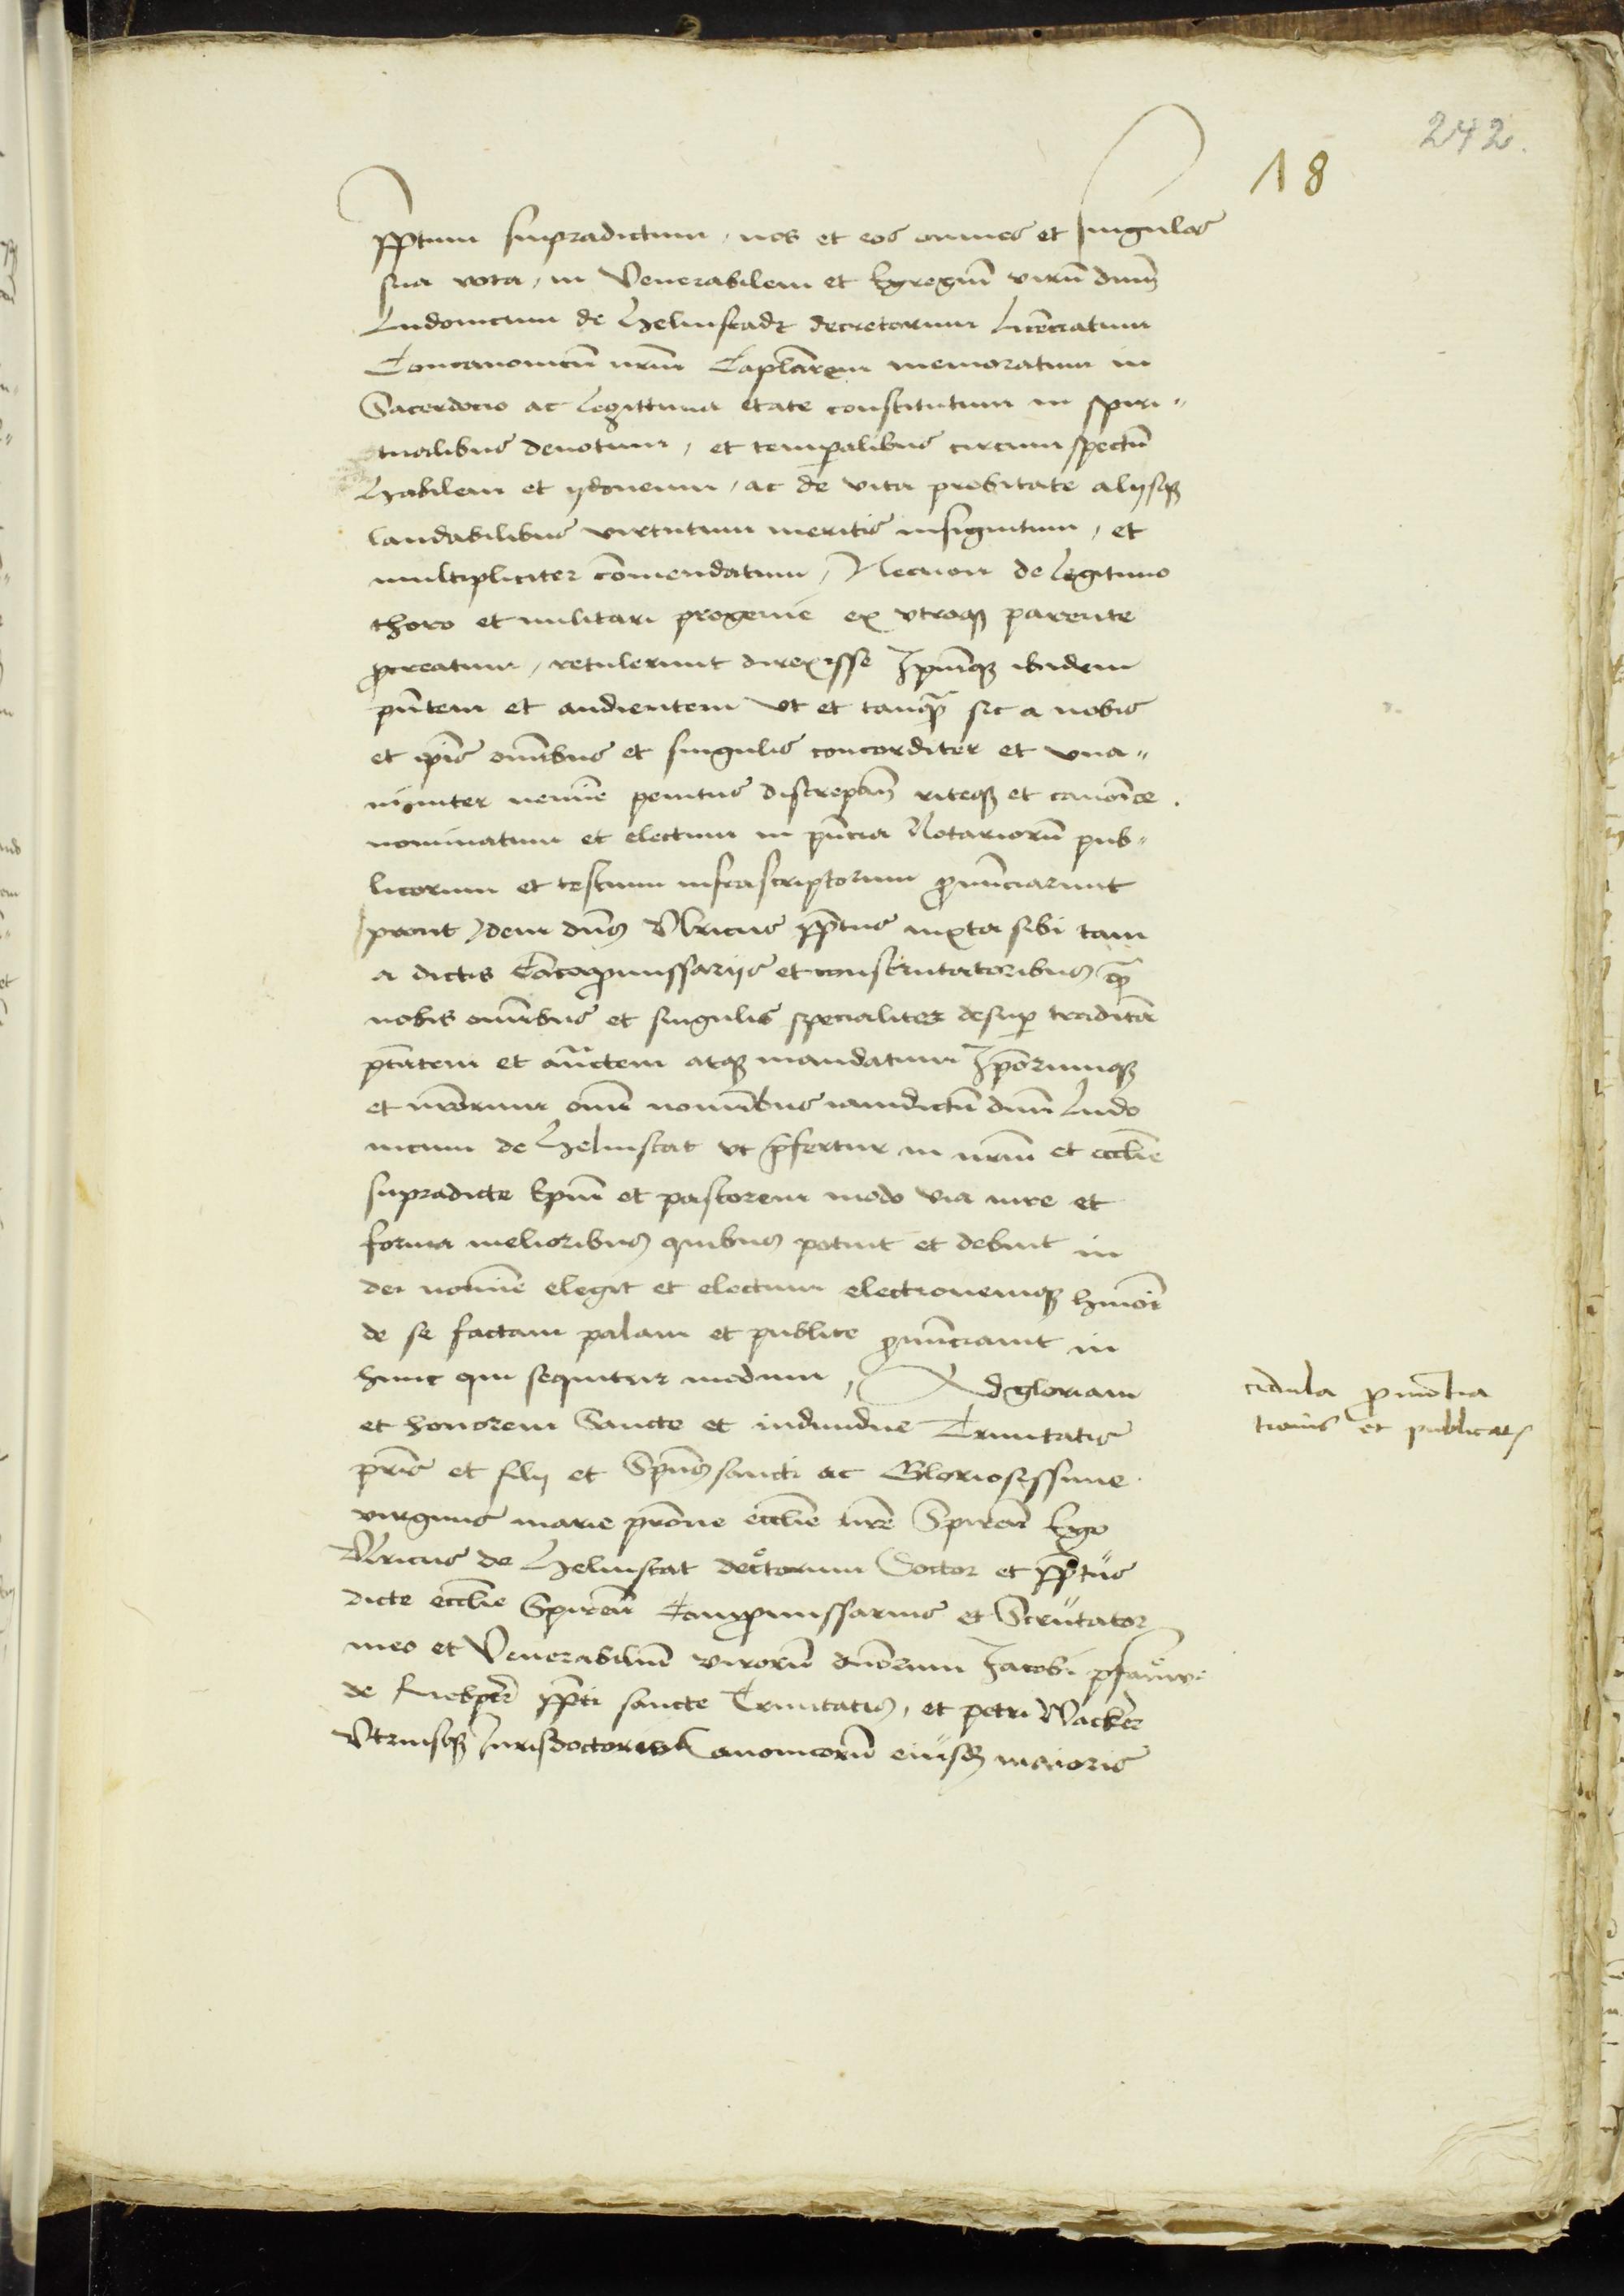 242.
18
pp̄tum supradictum, nos et eos omnes et singulos
sua vota, in Venerabilem et Egregiū virū dnm̄
Ludouicum de Helmstadt decretorum Licēciatum
Concanonicū nrm̄ Caplārem memoratum in
Sacerdocio ac legittima etate constitutum in spiri-
tualibus deuotum, et temꝑalibus circumspectū
Habilem et ydoneum, ac de vita probitate alijsqꝫ
laudabilibus virtutum meritis insignitum, et
multipliciter cōmendatum, Necnon de legitimo
thoro et militari progenie ex vtroqꝫ parente
ꝓcreatum, retulerunt direxisse Ipm̄qꝫ ibidem
pn̄tem et audientem vt et tanqꝫ̄ sic a nobis
et ip̄is om̄ibus et singulis concorditer et vna-
nimiter nemīe penitus discrepan̄ riteqꝫ et canoīce
nominatum et electum in pn̄cia Notariorū pub-
licorum et testium infrascriptorum ꝓnūciarunt
prout idem dn̄s Vlricus pp̄tus iuxta sibi tam
a dictis Cōcoꝓmissarijs et conscrutatoribus qꝫ̄
nobis om̄ibus et singulis specialiter desuꝑ traditā
ptātem et auc̄tem atqꝫ mandatum Ip̄orumqꝫ
et nr̄orum om̄i nomībus iamdictū dnm̄ Ludo
uicum de Helmstat vt p̄fertur in nrm̄ et eccl̄ie
supradicte Ep̄m et pastorem modo via iure et
forma melioribus quibus potuit et debuit in
dei nomīe elegit et electum electionemqꝫ hmōi
de se factam palam et publice ꝓnūciauit in
hunc qui sequitur modum, Ad gloriam
et honorem Sancte et indiuidue Trinitatis
pr̄is et filij et Sp̄us sancti ac Gloriosissime
virginis marie pr̄one eccl̄ie nr̄e Spireñ Ego
Vlricus de Helmstat decrtorum Doctor et pp̄tus
dicte eccl̄ie Spireñ Conꝓmissarius et Scrutator
meo et Venerabiliū virorū dn̄orum Jacobi pfawe
de pp̄ti sancte Trinitatis, et petri Wacker
Vtriusqꝫ Jurisdoctoris Canonicorū eiusdꝫ maioris
cedula ꝓnūctia
tionis et publicat